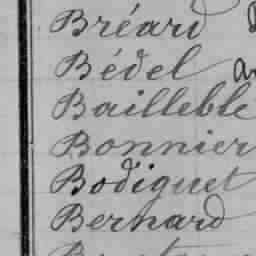 Bréard
Bédel
Bailleble
Bonnier
Bodiguet
Bernard